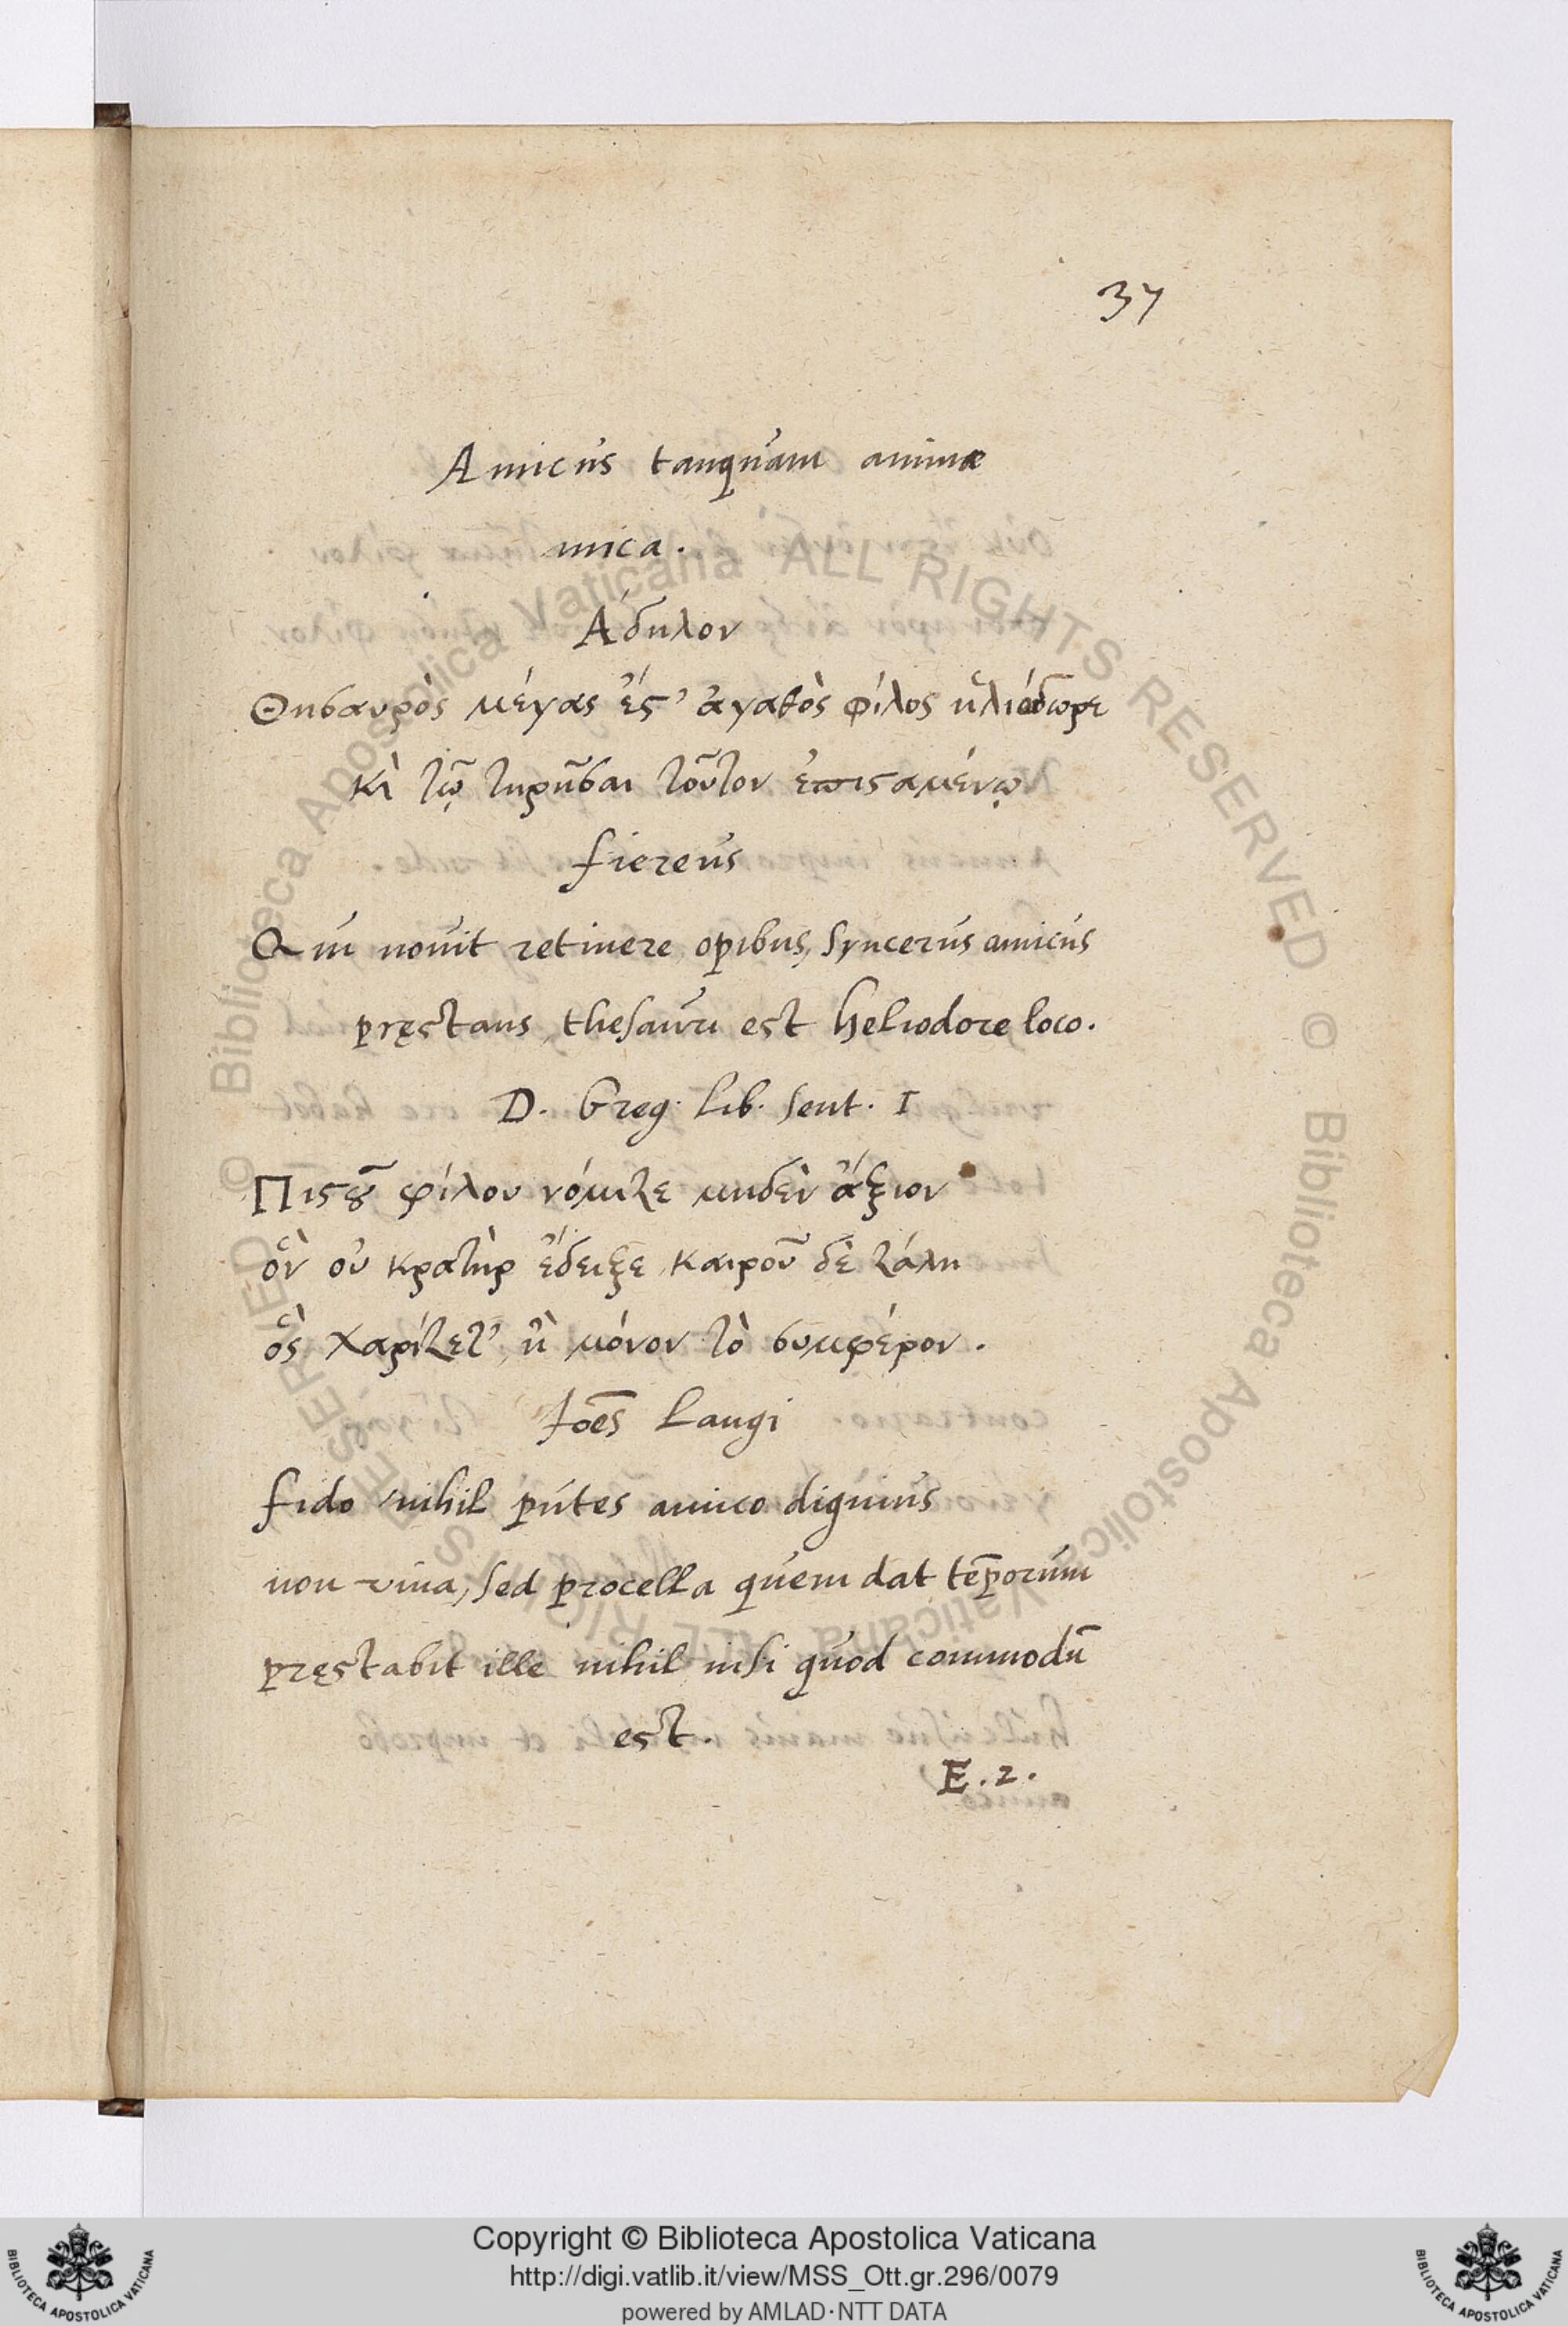 37
Amicus tanquam animæ
mica.
Ἄδηλον
Θησαυρὸς μέγας ἔϛ' ἀγαθὸς φίλος ἡλιόδωρε
κὶ τῷ τηρῆσαι τοῦτον ἐπιϛαμένῳ
fiereus
Qui nouit retinere, opibus, syncerus amicus
pręstans, thesauri est heliodore loco.
D. Greg. Lib. Sent. I
Πιϛȣ͂ φίλου νόμιζε μηδὲν ἄξιον
ὃν οὐ κρατὴρ ἔδειξε, καιροῦ δὲ ζάλη
ὃς χαρίζετ', ἢ μόνον τὸ συμφέρον.
Joēs Langi
fido nihil putes amico dignius
non vina, sed procella quem dat tēporum
pręstabit ille nihil nisi quod commodū
est.
E. 2.
Copyright © Biblioteca Apostolica Vaticana
http://digi.vatlib.it/view/MSS_Ott.gr.296/0079
powered by AMLAD·NTT DATA
BIBLIOTECA APOSTOLICA VATICANA
BIBLIOTECA APOSTOLICA VATICANA
© Biblioteca Apostolica Vaticana ALL RIGHTS RESERVED
© Biblioteca Apostolica Vaticana ALL RIGHTS RESERVED